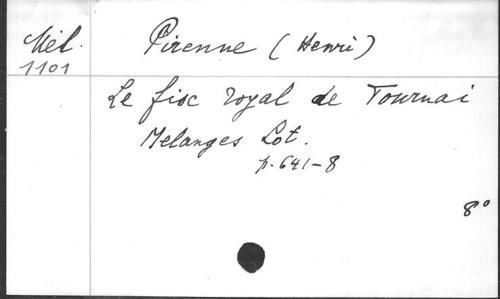 Mél. Pirenne (Henri)
1101
Le fisc royal de Tournai
Melanges Lot.
p. 641-8
8°